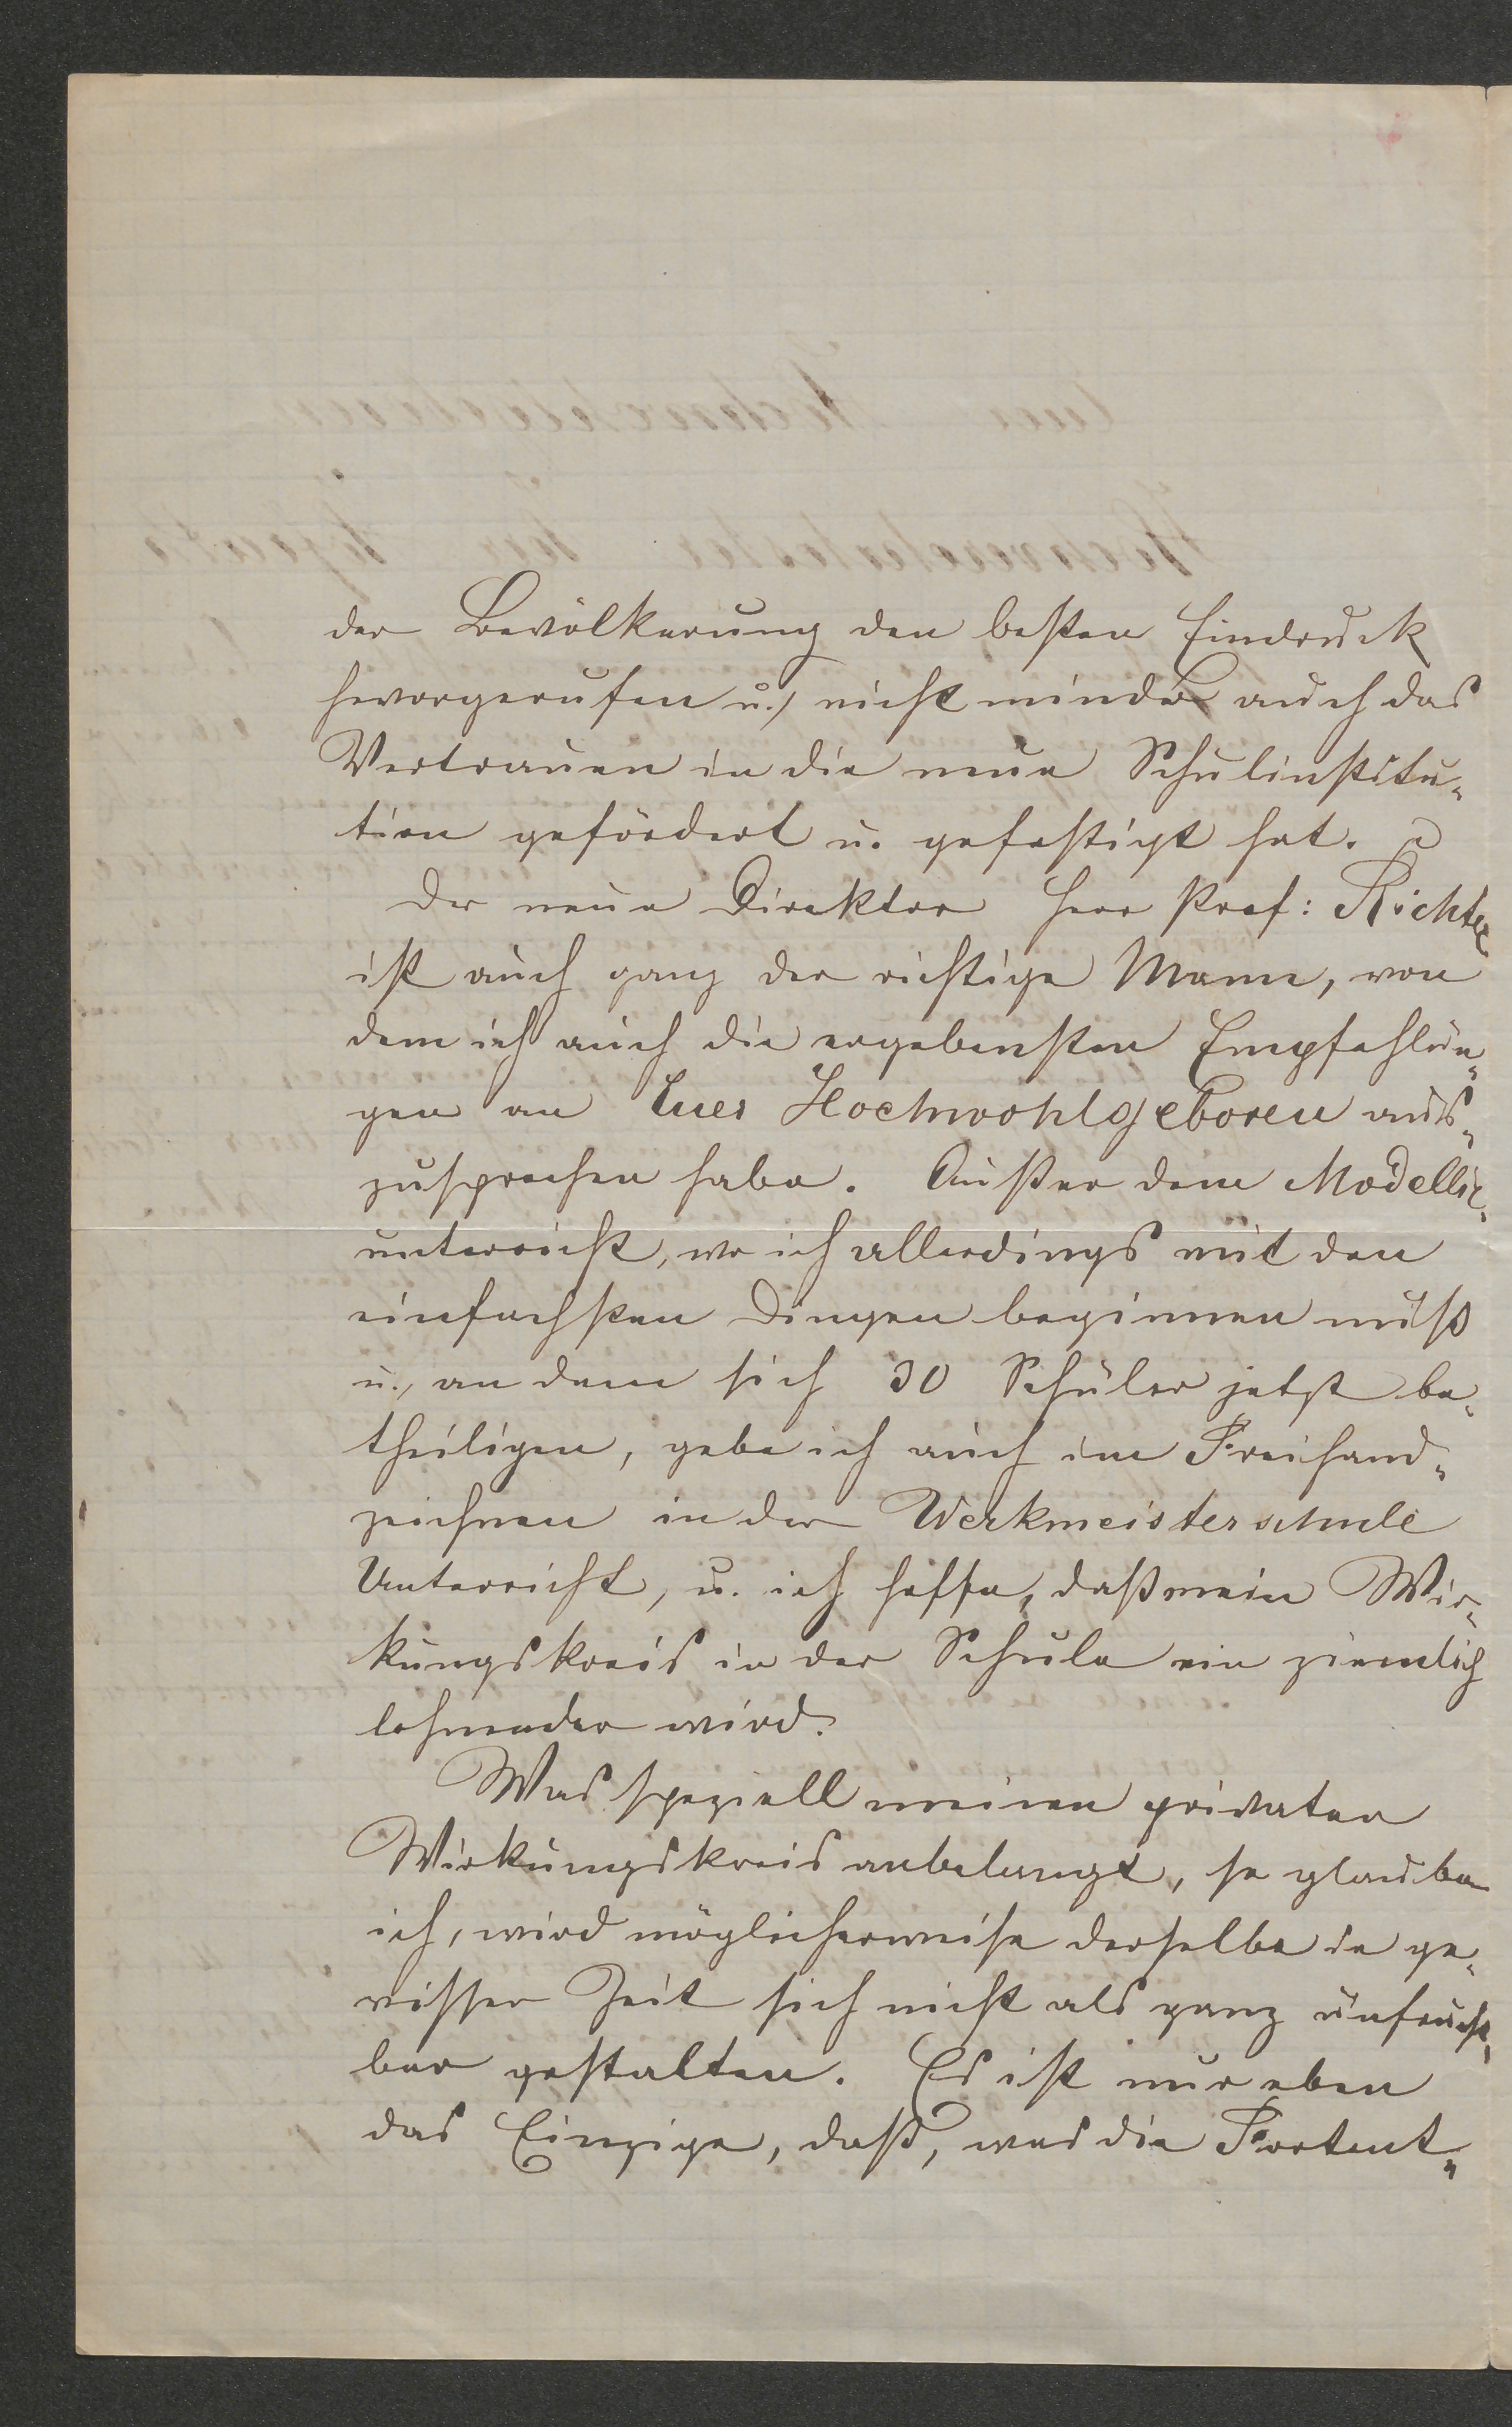 der Bevölkerung den besten Eindruck
hervorgerufen u., nicht minder auch das
Vertrauen in die neue Schulinstitu„
tion gefördert u. gefestigt hat.
Der neue Direktor Herr Prof: Richter
ist auch ganz der richtige Mann, von
dem ich auch die ergebensten Empfehlun„
gen an Euer Hochwohlgeboren aus„
zusprechen habe. Außer dem Modellir„
unterricht, wo ich allerdings mit den
einfachsten Dingen beginnen muß
u., an dem sich 30 Schüler jetzt be„
theiligen, gebe ich auch im Freihand„
zeichnen in der Werkmeisterschule
Unterricht, u. ich hoffe, daß mein Wir„
kungskreis in der Schule ein ziemlich
lohnender wird.
Was speziell meinen privaten
Wirkungskreis anbelangt, so glaube
ich, wird möglicherweise derselbe in ge„
wisser Zeit sich nicht als ganz unfrucht„
bar gestalten. Es ist nur eben
das Einzige, daß, was die Fortent„